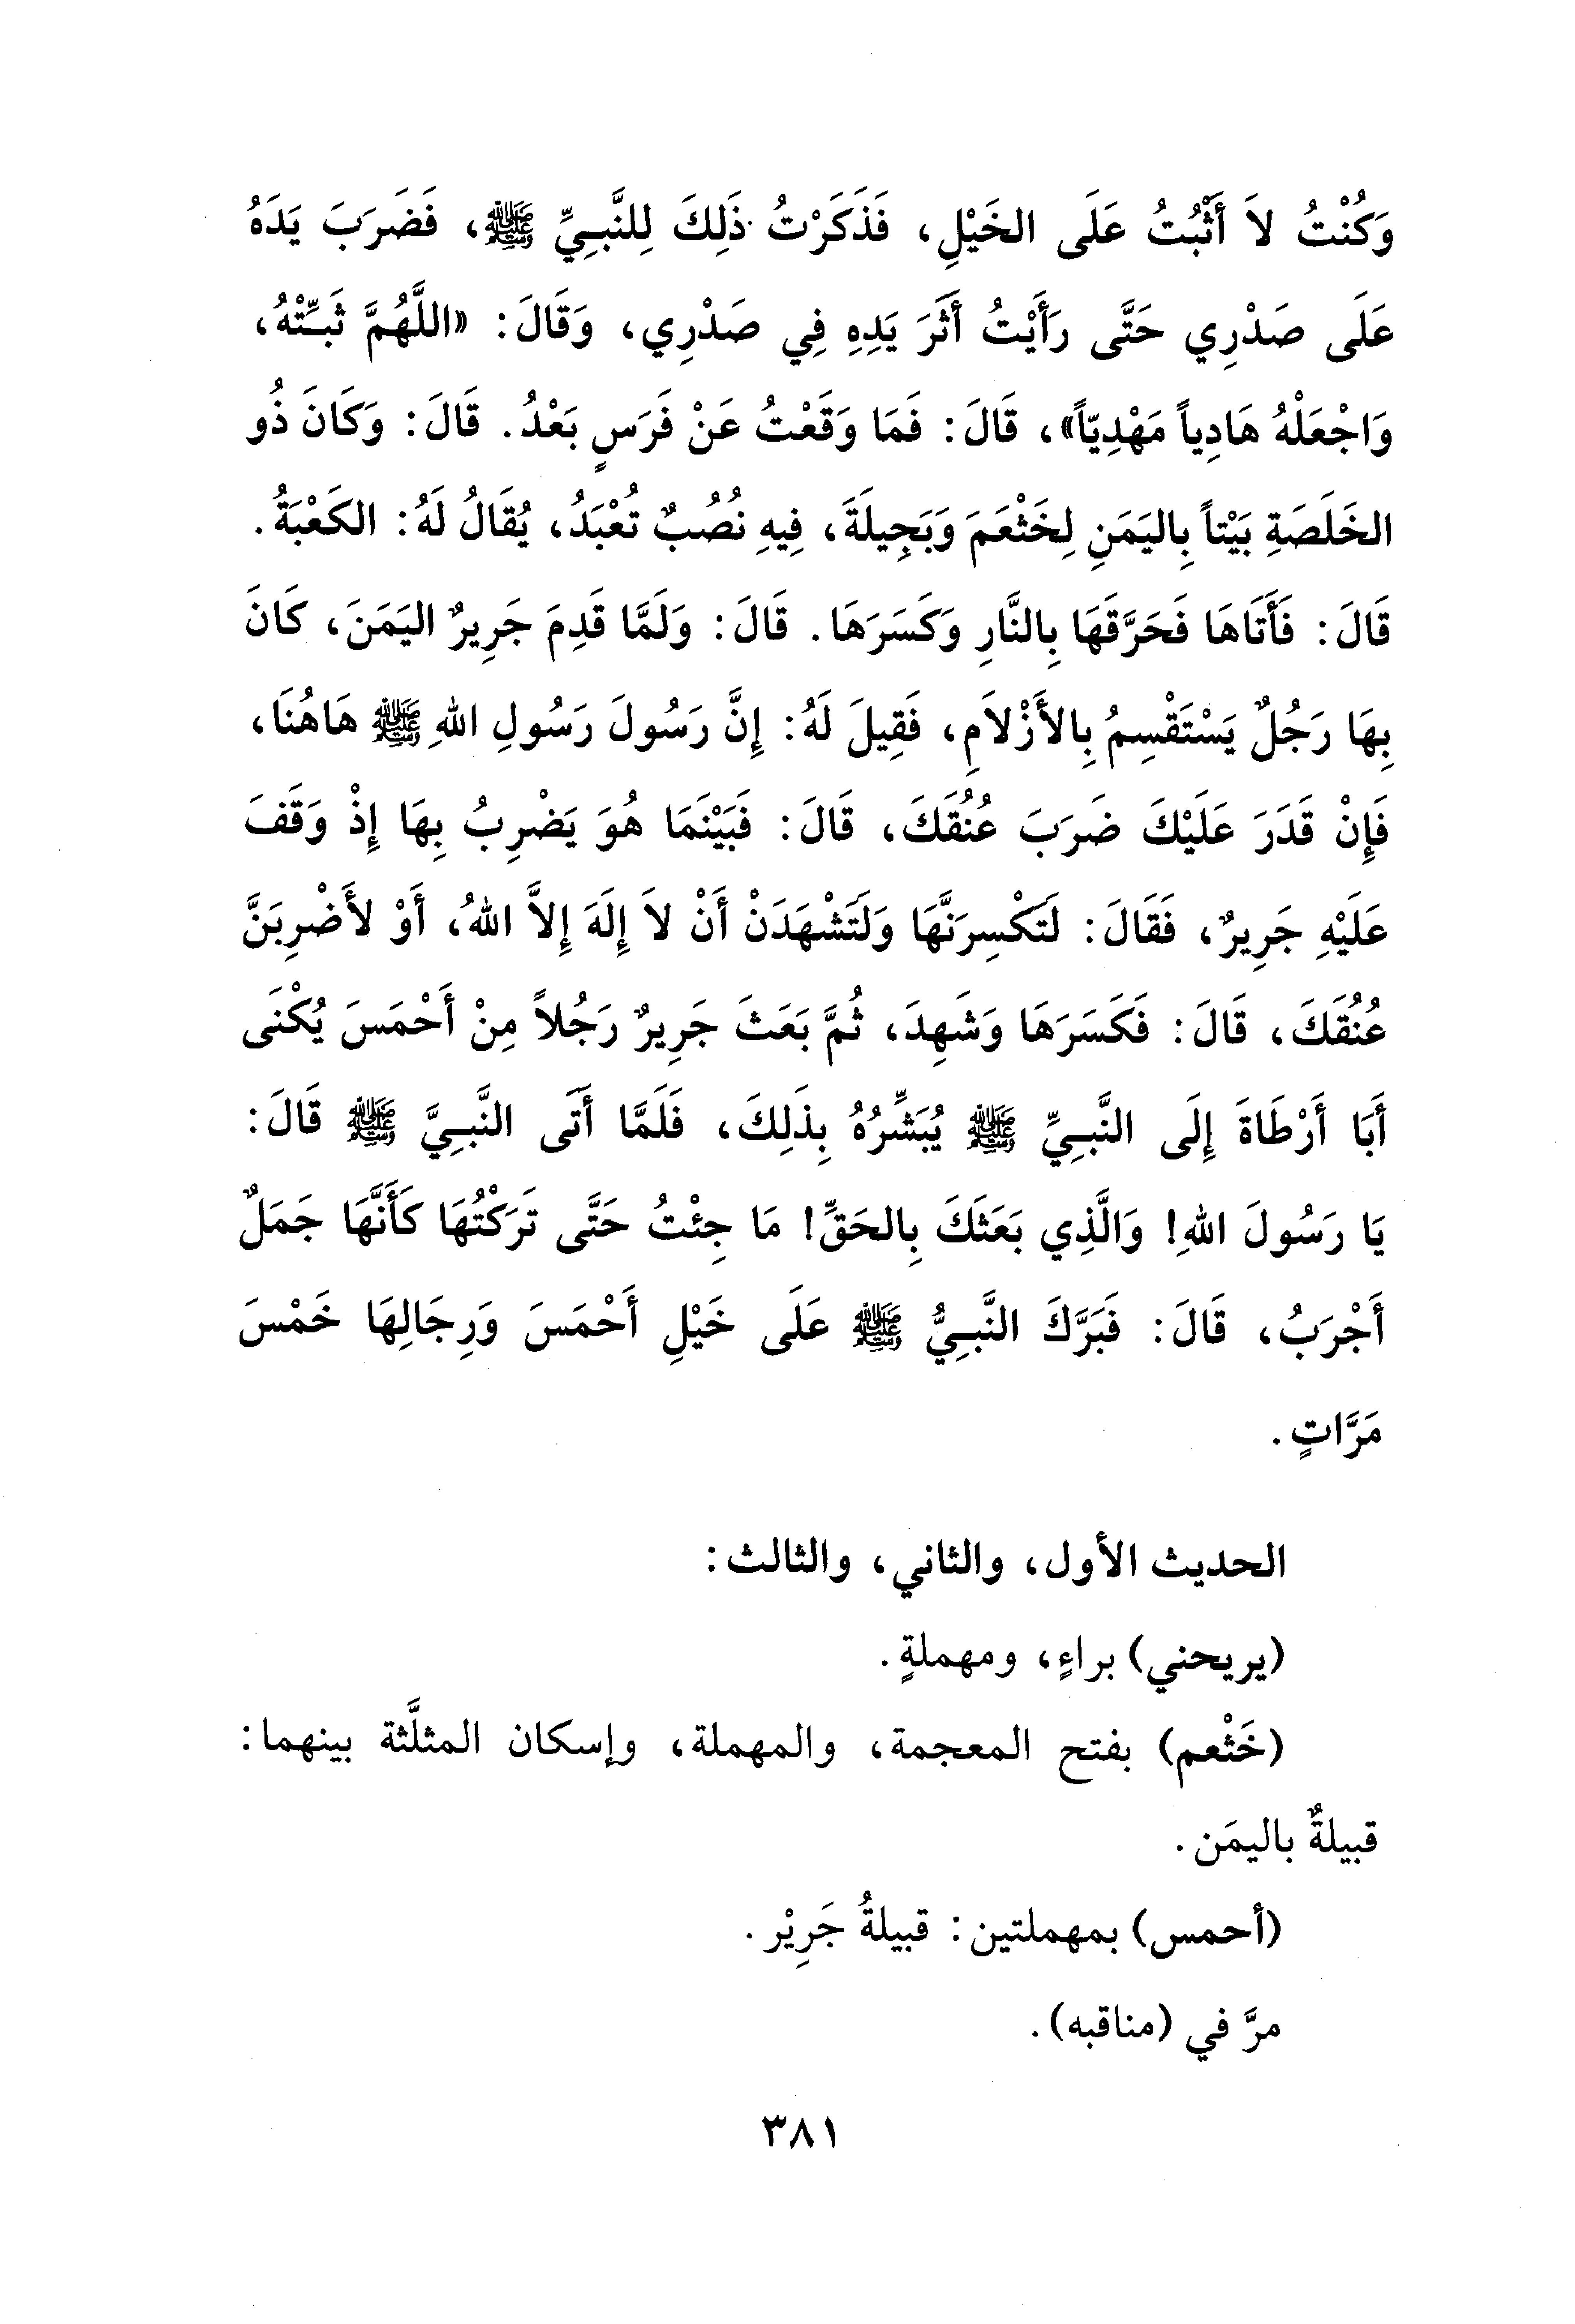 وَكُنْتُ لاَ أَثْبُتُ عَلَى الخَيْلِ، فَذَكَرْتُ ذَلِكَ لِلنَّبِيِّ ﷺ، فَضَرَبَ يَدَهُ
عَلَى صَدْرِي حَتَّى رَأَيْتُ أَثَرَ يَدِهِ فِي صَدْرِي، وَقَالَ: «اللَّهُمَّ ثَبِّتْهُ،
وَاجْعَلْهُ هَادِياً مَهْدِيّاً»، قَالَ: فَمَا وَقَعْتُ عَنْ فَرَسٍ بَعْدُ. قَالَ: وَكَانَ ذُو
الخَلَصَةِ بَيْتاً بِاليَمَنِ لِخَثْعَمَ وَبَجِيلَةَ، فِيهِ نُصُبٌ تُعْبَدُ، يُقَالُ لَهُ: الكَعْبَةُ.
قَالَ: فَأَتَاهَا فَحَرَّقَهَا بِالنَّارِ وَكَسَرَهَا. قَالَ: وَلَمَّا قَدِمَ جَرِيرٌ اليَمَنَ، كَانَ
بِهَا رَجُلٌ يَسْتَقْسِمُ بِالأَزْلاَمِ، فَقِيلَ لَهُ: إِنَّ رَسُولَ رَسُولِ اللهِ ﷺ هَاهُنَا،
فَإِنْ قَدَرَ عَلَيْكَ ضَرَبَ عُنُقَكَ، قَالَ: فَبَيْنَمَا هُوَ يَضْرِبُ بِهَا إِذْ وَقَفَ
عَلَيْهِ جَرِيرٌ، فَقَالَ: لَتَكْسِرَنَّهَا وَلَتَشْهَدَنْ أَنْ لاَ إِلَهَ إِلاَّ اللهُ، أَوْ لأَضْرِبَنَّ
عُنُقَكَ، قَالَ: فَكَسَرَهَا وَشَهِدَ، ثُمَّ بَعَثَ جَرِيرٌ رَجُلاً مِنْ أَحْمَسَ يُكْنَى
أَبَا أَرْطَاةَ إِلَى النَّبِيِّ ﷺ يُبَشِّرُهُ بِذَلِكَ، فَلَمَّا أَتَى النَّبِيَّ ﷺ قَالَ:
يَا رَسُولَ اللهِ! وَالَّذِي بَعَثَكَ بِالحَقِّ! مَا جِئْتُ حَتَّى تَرَكْتُهَا كَأَنَّهَا جَمَلٌ
أَجْرَبُ، قَالَ: فَبَرَّكَ النَّبِيُّ ﷺ عَلَى خَيْلِ أَحْمَسَ وَرِجَالِهَا خَمْسَ
مَرَّاتٍ.
الحديث الأول، والثاني، والثالث:
(يريحني) براءٍ، ومهملةٍ.
(خَثْعم) بفتح المعجمة، والمهملة، وإسكان المثلَّثة بينهما:
قبيلةٌ باليمَن.
(أحمس) بمهملتين: قبيلةُ جَرِيْر.
مرَّ في (مناقبه).
٣٨١